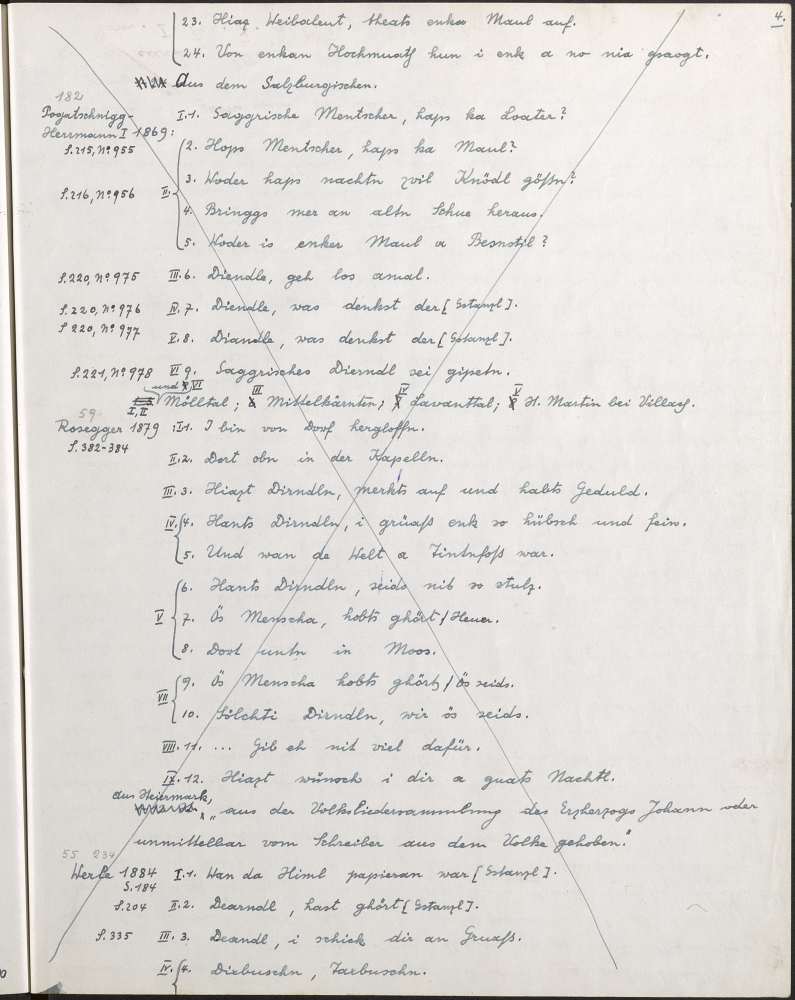 4.
23. Hiaz Weibaleut, theats enka Maul auf.
24. Von enkan Hochmuath hun i enk a no nia gsaogt.
Aus dem Salzburgischen.
182
Pogatschnigg-Herrmann I 1869:
S.215, No 955 I.1. Saggrische Mentscher, haps ka Loater?
2. Hops Mentscher, haps ka Maul?
S.216, No 956 II. 3. Woder haps nachtn zvil Knödl gößn?
4. Bringgs mer an altn Schue heraus.
5. Woder is enker Maul a Besnstil?
S.220, No 975 III.6. Diendle, geh los amal.
S.220, No 976 IV.7. Diendle, was denkst der [Gstanzl].
S 220, No 977 V.8. Diandle, was denkst der [Gstanzl].
S.221, No 978 VI 9. Saggrisches Dierndl sei gipetn.
I, II und VI Mölltal; III Mittelkärnten; IV Lavanttal; V St. Martin bei Villach.
59
Rosegger 1879: I.1. I bin von Dorf hergloffn.
S.382-384 II.2. Dort obn in der Kapelln.
III.3. Hiazt Dirndln, merkts auf und habts Geduld.
IV. 4. Hants Dirndln, i grüaß enk so hübsch und fein.
5. Und wan de Welt a Tintnfoß war.
6. Hants Dirndln, seids nit so stulz.
V 7. Ös Menscha, hobts ghört / Heuer.
8. Dort untn in Moos.
VII 9. Ös Menscha hobts ghört / Ös seids.
10. Sölchti Dirndln, wir ös seids.
VIII. 11. ... Gib eh nit viel dafür.
IX. 12. Hiazt wünsch i dir a guats Nachtl.
Aus Steiermark, "aus der Volksliedersammlung des Erzherzogs Johann oder
unmittelbar vom Schreiber aus dem Volke gehoben."
55 234
Werle 1884 I.1. Wan da Himl papieran war [Gstanzl].
S.184
S.204 II.2. Dearndl, hast ghört [Gstanzl].
S.335 III.3. Deandl, i schick dir an Gruaß.
IV. 4. Diebuschn, Tarbuschn.